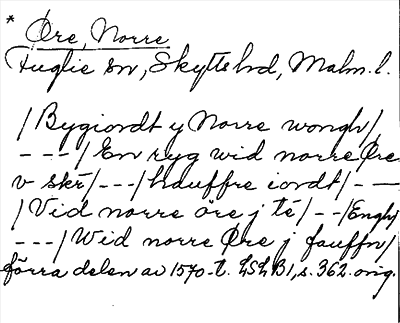 * Öre, Norre
Fuglie sn, Skytts hd, Malm. l.
/Bygiordt y Norre wongh/
---/En ryg wid norre Øre
v skr/---/hauffre iordt/-—
/Vid norre öre j té/--/Engh/
---/Wid norre Øre j fauffn/
förra delen av 1570-t. LSLB1, s. 362. orig.